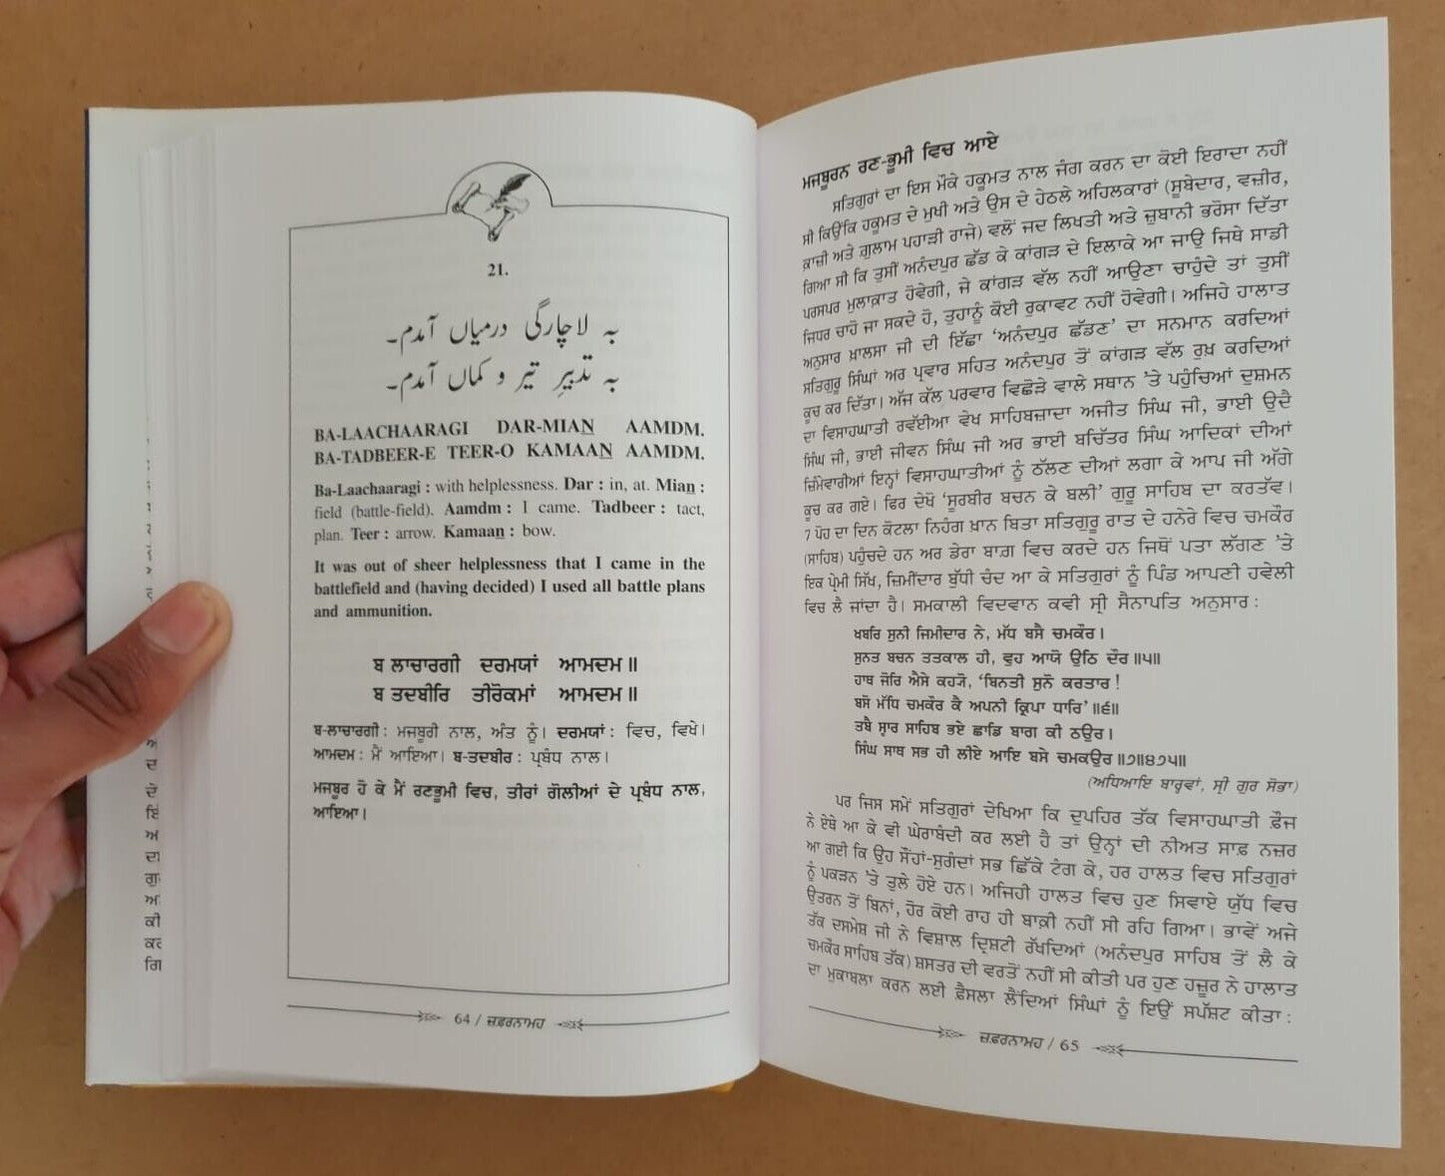 21.
بہ لاچارگی درمیاں آمدم۔
بہ تدبیرِ تیر و کماں آمدم۔
BA-LAACHAARAGI DAR-MIAN AAMDM.
BA-TADBEER-E TEER-O KAMAAN AAMDM.
Ba-Laachaaragi : with helplessness. Dar : in, at. Mian :
field (battle-field). Aamdm : I came. Tadbeer : tact,
plan. Teer : arrow. Kamaan : bow.
It was out of sheer helplessness that I came in the
battlefield and (having decided) I used all battle plans
and ammunition.
ਬ ਲਾਚਾਰਗੀ ਦਰਮਯਾਂ ਆਮਦਮ ॥
ਬ ਤਦਬੀਰਿ ਤੀਰੋਕਮਾਂ ਆਮਦਮ ॥
ਬ-ਲਾਚਾਰਗੀ : ਮਜਬੂਰੀ ਨਾਲ, ਅੰਤ ਨੂੰ। ਦਰਮਯਾਂ : ਵਿਚ, ਵਿਖੇ।
ਆਮਦਮ : ਮੈਂ ਆਇਆ। ਬ-ਤਦਬੀਰ : ਪ੍ਰਬੰਧ ਨਾਲ।
ਮਜਬੂਰ ਹੋ ਕੇ ਮੈਂ ਰਣਭੂਮੀ ਵਿਚ, ਤੀਰਾਂ ਗੋਲੀਆਂ ਦੇ ਪ੍ਰਬੰਧ ਨਾਲ,
ਆਇਆ।
64 / ਜ਼ਫ਼ਰਨਾਮਹ
ਮਜਬੂਰਨ ਰਣ-ਭੂਮੀ ਵਿਚ ਆਏ
ਸਤਿਗੁਰਾਂ ਦਾ ਇਸ ਮੌਕੇ ਹਕੂਮਤ ਨਾਲ ਜੰਗ ਕਰਨ ਦਾ ਕੋਈ ਇਰਾਦਾ ਨਹੀਂ
ਸੀ ਕਿਉਂਕਿ ਹਕੂਮਤ ਦੇ ਮੁਖੀ ਅਤੇ ਉਸ ਦੇ ਹੇਠਲੇ ਅਹਿਲਕਾਰਾਂ (ਸੂਬੇਦਾਰ, ਵਜ਼ੀਰ,
ਕਾਜ਼ੀ ਅਤੇ ਗ਼ੁਲਾਮ ਪਹਾੜੀ ਰਾਜੇ) ਵਲੋਂ ਜਦ ਲਿਖਤੀ ਅਤੇ ਜ਼ੁਬਾਨੀ ਭਰੋਸਾ ਦਿੱਤਾ
ਗਿਆ ਸੀ ਕਿ ਤੁਸੀਂ ਅਨੰਦਪੁਰ ਛੱਡ ਕੇ ਕਾਂਗੜ ਦੇ ਇਲਾਕੇ ਆ ਜਾਉ ਜਿਥੇ ਸਾਡੀ
ਪਰਸਪਰ ਮੁਲਾਕ਼ਾਤ ਹੋਵੇਗੀ, ਜੇ ਕਾਂਗੜ ਵੱਲ ਨਹੀਂ ਆਉਣਾ ਚਾਹੁੰਦੇ ਤਾਂ ਤੁਸੀਂ
ਜਿਧਰ ਚਾਹੋ ਜਾ ਸਕਦੇ ਹੋ, ਤੁਹਾਨੂੰ ਕੋਈ ਰੁਕਾਵਟ ਨਹੀਂ ਹੋਵੇਗੀ। ਅਜਿਹੇ ਹਾਲਾਤ
ਅਨੁਸਾਰ ਖ਼ਾਲਸਾ ਜੀ ਦੀ ਇੱਛਾ ‘ਅਨੰਦਪੁਰ ਛੱਡਣ’ ਦਾ ਸਨਮਾਨ ਕਰਦਿਆਂ
ਸਤਿਗੁਰੂ ਸਿੰਘਾਂ ਅਰ ਪ੍ਰਵਾਰ ਸਹਿਤ ਅਨੰਦਪੁਰ ਤੋਂ ਕਾਂਗੜ ਵੱਲ ਰੁਖ਼ ਕਰਦਿਆਂ
ਕੂਚ ਕਰ ਦਿੱਤਾ। ਅੱਜ ਕੱਲ ਪਰਵਾਰ ਵਿਛੋੜੇ ਵਾਲੇ ਸਥਾਨ ’ਤੇ ਪਹੁੰਚਿਆਂ ਦੁਸ਼ਮਨ
ਦਾ ਵਿਸਾਹਘਾਤੀ ਰਵੱਈਆ ਵੇਖ ਸਾਹਿਬਜ਼ਾਦਾ ਅਜੀਤ ਸਿੰਘ ਜੀ, ਭਾਈ ਉਦੈ
ਸਿੰਘ ਜੀ, ਭਾਈ ਜੀਵਨ ਸਿੰਘ ਜੀ ਅਰ ਭਾਈ ਬਚਿੱਤਰ ਸਿੰਘ ਆਦਿਕਾਂ ਦੀਆਂ
ਜ਼ਿੰਮੇਵਾਰੀਆਂ ਇਨ੍ਹਾਂ ਵਿਸਾਹਘਾਤੀਆਂ ਨੂੰ ਠੱਲਣ ਦੀਆਂ ਲਗਾ ਕੇ ਆਪ ਜੀ ਅੱਗੇ
ਕੂਚ ਕਰ ਗਏ। ਫਿਰ ਦੇਖੋ ‘ਸੂਰਬੀਰ ਬਚਨ ਕੇ ਬਲੀ’ ਗੁਰੂ ਸਾਹਿਬ ਦਾ ਕਰਤੱਵ।
7 ਪੋਹ ਦਾ ਦਿਨ ਕੋਟਲਾ ਨਿਹੰਗ ਖ਼ਾਨ ਬਿਤਾ ਸਤਿਗੁਰੂ ਰਾਤ ਦੇ ਹਨੇਰੇ ਵਿਚ ਚਮਕੌਰ
(ਸਾਹਿਬ) ਪਹੁੰਚਦੇ ਹਨ ਅਰ ਡੇਰਾ ਬਾਗ਼ ਵਿਚ ਕਰਦੇ ਹਨ ਜਿਥੋਂ ਪਤਾ ਲੱਗਣ ’ਤੇ
ਇਕ ਪ੍ਰੇਮੀ ਸਿੱਖ, ਜ਼ਿਮੀਂਦਾਰ ਬੁੱਧੀ ਚੰਦ ਆ ਕੇ ਸਤਿਗੁਰਾਂ ਨੂੰ ਪਿੰਡ ਆਪਣੀ ਹਵੇਲੀ
ਵਿਚ ਲੈ ਜਾਂਦਾ ਹੈ। ਸਮਕਾਲੀ ਵਿਦਵਾਨ ਕਵੀ ਸ੍ਰੀ ਸੈਨਾਪਤਿ ਅਨੁਸਾਰ :
ਖਬਰਿ ਸੁਨੀ ਜਿਮੀਦਾਰ ਨੇ, ਮੱਧ ਬਸੈ ਚਮਕੌਰ।
ਸੁਨਤ ਬਚਨ ਤਤਕਾਲ ਹੀ, ਵੁਹ ਆਯੋ ਉਠਿ ਦੌਰ ॥੫॥
ਹਾਥ ਜੋਰਿ ਐਸੇ ਕਹਯੋ, ‘ਬਿਨਤੀ ਸੁਨੋ ਕਰਤਾਰ !
ਬਸੋ ਮੱਧਿ ਚਮਕੌਰ ਕੈ ਅਪਨੀ ਕ੍ਰਿਪਾ ਧਾਰਿ’ ॥੬॥
ਤਬੈ ਸ੍ਵਾਰ ਸਾਹਿਬ ਭਏ ਛਾਡਿ ਬਾਗ ਕੀ ਠਉਰ।
ਸਿੰਘ ਸਾਥ ਸਭ ਹੀ ਲੀਏ ਆਇ ਬਸੇ ਚਮਕਉਰ ॥੭॥੪੭੫॥
(ਅਧਿਆਇ ਬਾਰ੍ਹਵਾਂ, ਸ੍ਰੀ ਗੁਰ ਸੋਭਾ)
ਪਰ ਜਿਸ ਸਮੇਂ ਸਤਿਗੁਰਾਂ ਦੇਖਿਆ ਕਿ ਦੁਪਹਿਰ ਤੱਕ ਵਿਸਾਹਘਾਤੀ ਫ਼ੌਜ
ਨੇ ਏਥੇ ਆ ਕੇ ਵੀ ਘੇਰਾਬੰਦੀ ਕਰ ਲਈ ਹੈ ਤਾਂ ਉਨ੍ਹਾਂ ਦੀ ਨੀਅਤ ਸਾਫ਼ ਨਜ਼ਰ
ਆ ਗਈ ਕਿ ਉਹ ਸੌਂਹਾਂ-ਸੁਗੰਦਾਂ ਸਭ ਛਿੱਕੇ ਟੰਗ ਕੇ, ਹਰ ਹਾਲਤ ਵਿਚ ਸਤਿਗੁਰਾਂ
ਨੂੰ ਪਕੜਨ ’ਤੇ ਤੁਲੇ ਹੋਏ ਹਨ। ਅਜਿਹੀ ਹਾਲਤ ਵਿਚ ਹੁਣ ਸਿਵਾਏ ਯੁੱਧ ਵਿਚ
ਉਤਰਨ ਤੋਂ ਬਿਨਾਂ, ਹੋਰ ਕੋਈ ਰਾਹ ਹੀ ਬਾਕ਼ੀ ਨਹੀਂ ਸੀ ਰਹਿ ਗਿਆ। ਭਾਵੇਂ ਅਜੇ
ਤੱਕ ਦਸਮੇਸ਼ ਜੀ ਨੇ ਵਿਸ਼ਾਲ ਦ੍ਰਿਸ਼ਟੀ ਰੱਖਦਿਆਂ (ਅਨੰਦਪੁਰ ਸਾਹਿਬ ਤੋਂ ਲੈ ਕੇ
ਚਮਕੌਰ ਸਾਹਿਬ ਤੱਕ) ਸ਼ਸਤਰ ਦੀ ਵਰਤੋਂ ਨਹੀਂ ਸੀ ਕੀਤੀ ਪਰ ਹੁਣ ਹਜ਼ੂਰ ਨੇ ਹਾਲਾਤ
ਦਾ ਮੁਕਾਬਲਾ ਕਰਨ ਲਈ ਫ਼ੈਸਲਾ ਲੈਂਦਿਆਂ ਸਿੰਘਾਂ ਨੂੰ ਇਉਂ ਸਪੱਸ਼ਟ ਕੀਤਾ :
ਜ਼ਫ਼ਰਨਾਮਹ / 65